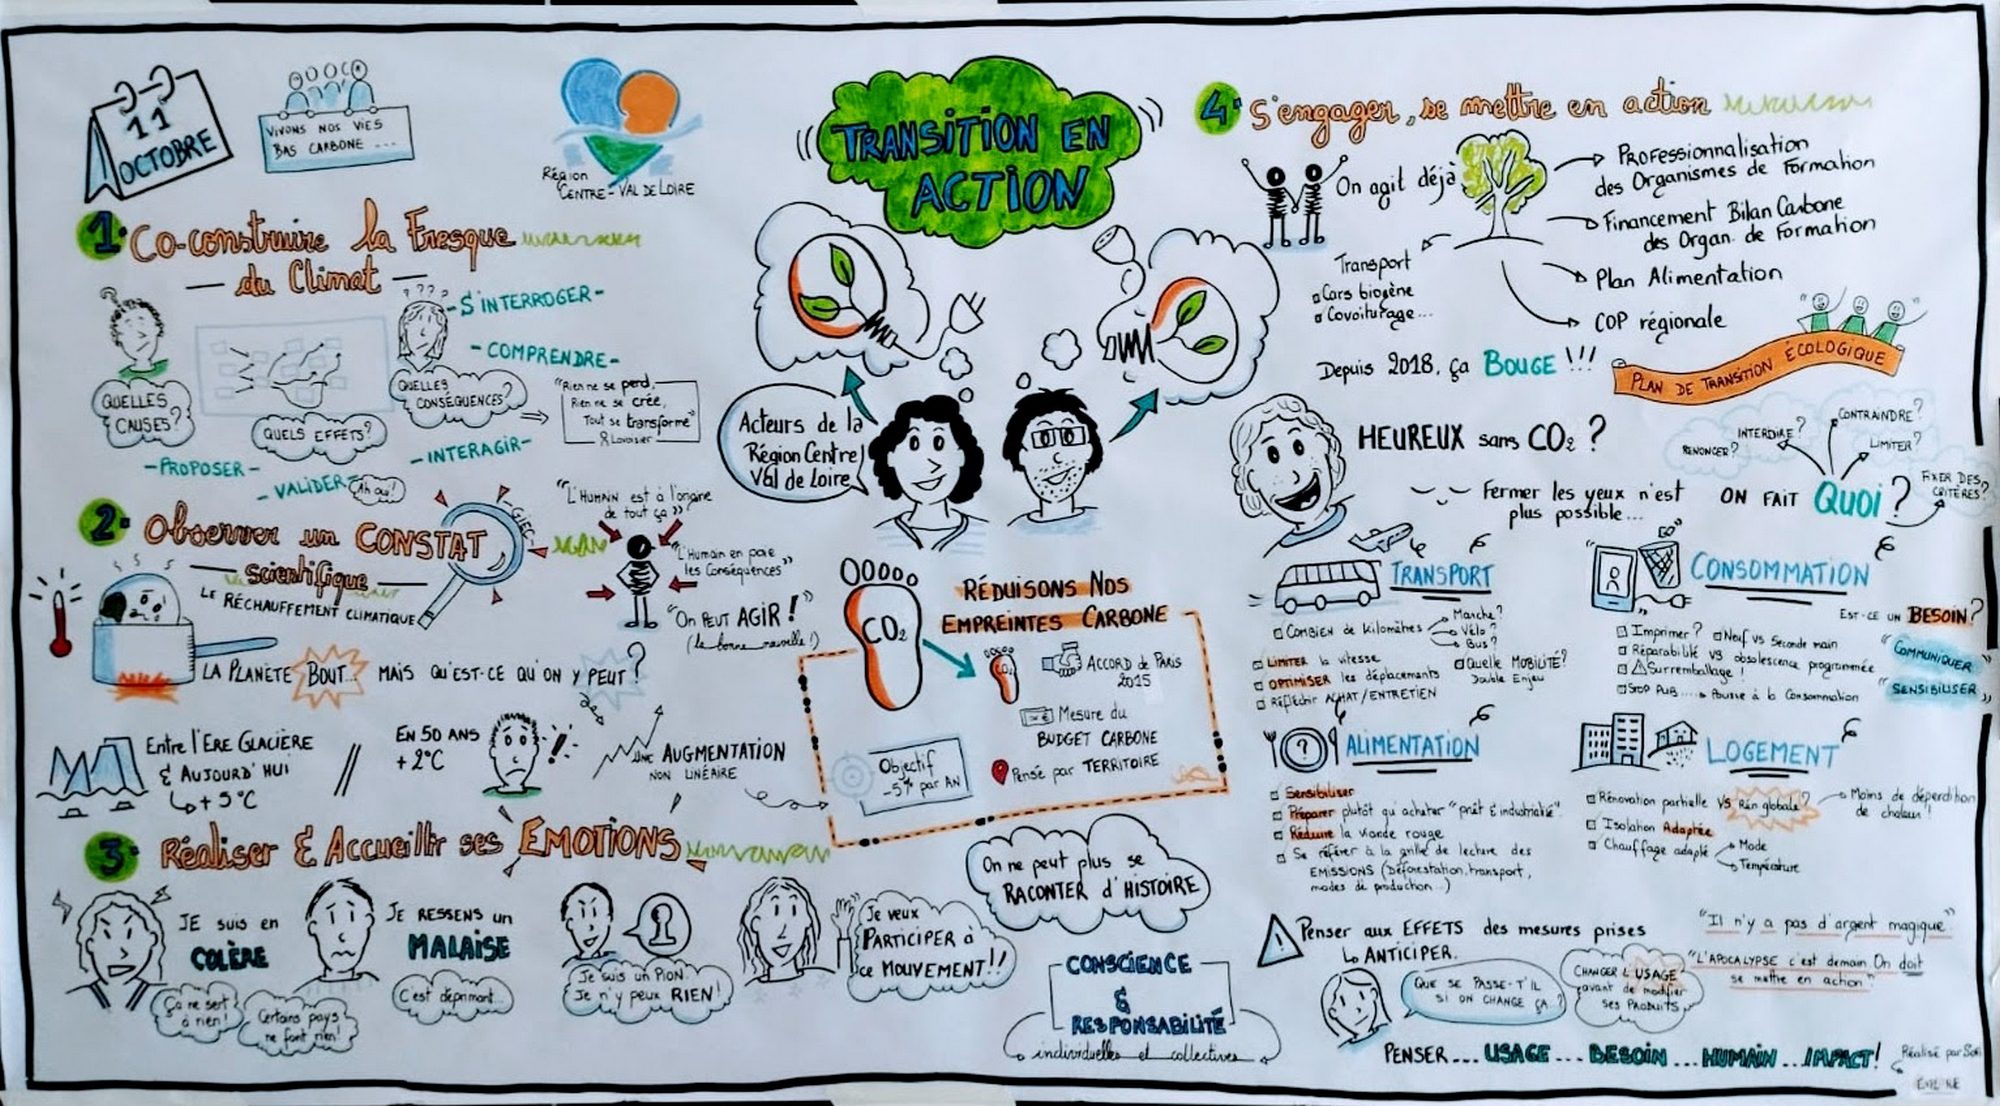 11
OCTOBRE
VIVONS NOS VIES
BAS CARBONE ...
Région
CENTRE-VAL DE LOIRE
TRANSITION EN
ACTION
1. Co-construire la Fresque
- du Climat -
- S'INTERROGER -
- COMPRENDRE -
QUELLES
CAUSES?
QUELS EFFETS?
QUELLES
CONSÉQUENCES?
"Rien ne se perd,
Rien ne se crée,
Tout se transforme"
Lavoisier
- INTERAGIR -
- PROPOSER -
- VALIDER -
Ah oui!
2. Observer un CONSTAT
scientifique
GIEC
LE RÉCHAUFFEMENT CLIMATIQUE
"L'HUMAIN est à l'origine
de tout ça"
"L'Humain en paie
les conséquences"
"On PEUT AGIR!"
(la bonne nouvelle!)
LA PLANÈTE BOUT... MAIS QU'EST-CE QU'ON Y PEUT?
Entre l'ERE GLACIÈRE
& AUJOURD'HUI
+5°C
EN 50 ANS
+2°C
UNE AUGMENTATION
NON LINÉAIRE
3. Réaliser & Accueillir ses EMOTIONS
JE suis en
COLÈRE
Ça ne sert
à rien!
Certains pays
ne font rien!
JE RESSENS un
MALAISE
C'est déprimant...
Je suis un PION.
Je n'y peux RIEN!
Je veux
PARTICIPER à
ce MOUVEMENT!!
Acteurs de la
Région Centre
Val de Loire
CO2
RÉDUISONS NOS
EMPREINTES CARBONE
CO2
ACCORD de PARIS
2015
Mesure du
BUDGET CARBONE
Pensé par TERRITOIRE
Objectif
-5% par AN
On ne peut plus se
RACONTER d'HISTOIRE
CONSCIENCE
&
RESPONSABILITÉ
individuelles et collectives
4. S'engager, se mettre en action
On agit déjà
PROFessionnalisation
des Organismes de Formation
Financement Bilan Carbone
des Organ. de Formation
Plan Alimentation
COP régionale
Transport
Cars biogène
Covoiturage...
Depuis 2018, ça BOUGE !!!
PLAN DE TRANSITION ÉCOLOGIQUE
HEUREUX sans CO2 ?
Fermer les yeux n'est
plus possible...
ON FAIT QUOI ?
RENONCER?
INTERDIRE?
CONTRAINDRE?
LIMITER?
FIXER DES
CRITÈRES?
TRANSPORT
COMBIEN de Kilomètres
Marche?
Vélo?
Bus?
LIMITER la vitesse
OPTIMISER les déplacements
Réfléchir ACHAT/ENTRETIEN
Quelle MOBILITÉ?
Double Enjeu
CONSOMMATION
EST-CE UN BESOIN?
Imprimer?
Neuf VS Seconde main
Réparabilité VS obsolescence programmée
Suremballage!
STOP PUB ... Pousse à la Consommation
"COMMUNIQUER
SENSIBILISER"
ALIMENTATION
Sensibiliser
Préparer plutôt qu'acheter "prêt & industrialisé"
Réduire la viande rouge
Se référer à la grille de lecture des
EMISSIONS (Déforestation, transport,
modes de production...)
LOGEMENT
Rénovation partielle VS Rén globale?
Moins de déperdition
de chaleur!
Isolation Adaptée
Chauffage adapté
Mode
Température
Penser aux EFFETS des mesures prises
ANTICIPER.
"Il n'y a pas d'argent magique"
"L'APOCALYPSE c'est demain. On doit
se mettre en action"
QUE SE PASSE-T'IL
SI ON CHANGE ÇA?
CHANGER L'USAGE
avant de modifier
ses PRODUITS
PENSER... USAGE... BESOIN... HUMAIN... IMPACT!
Réalisé par